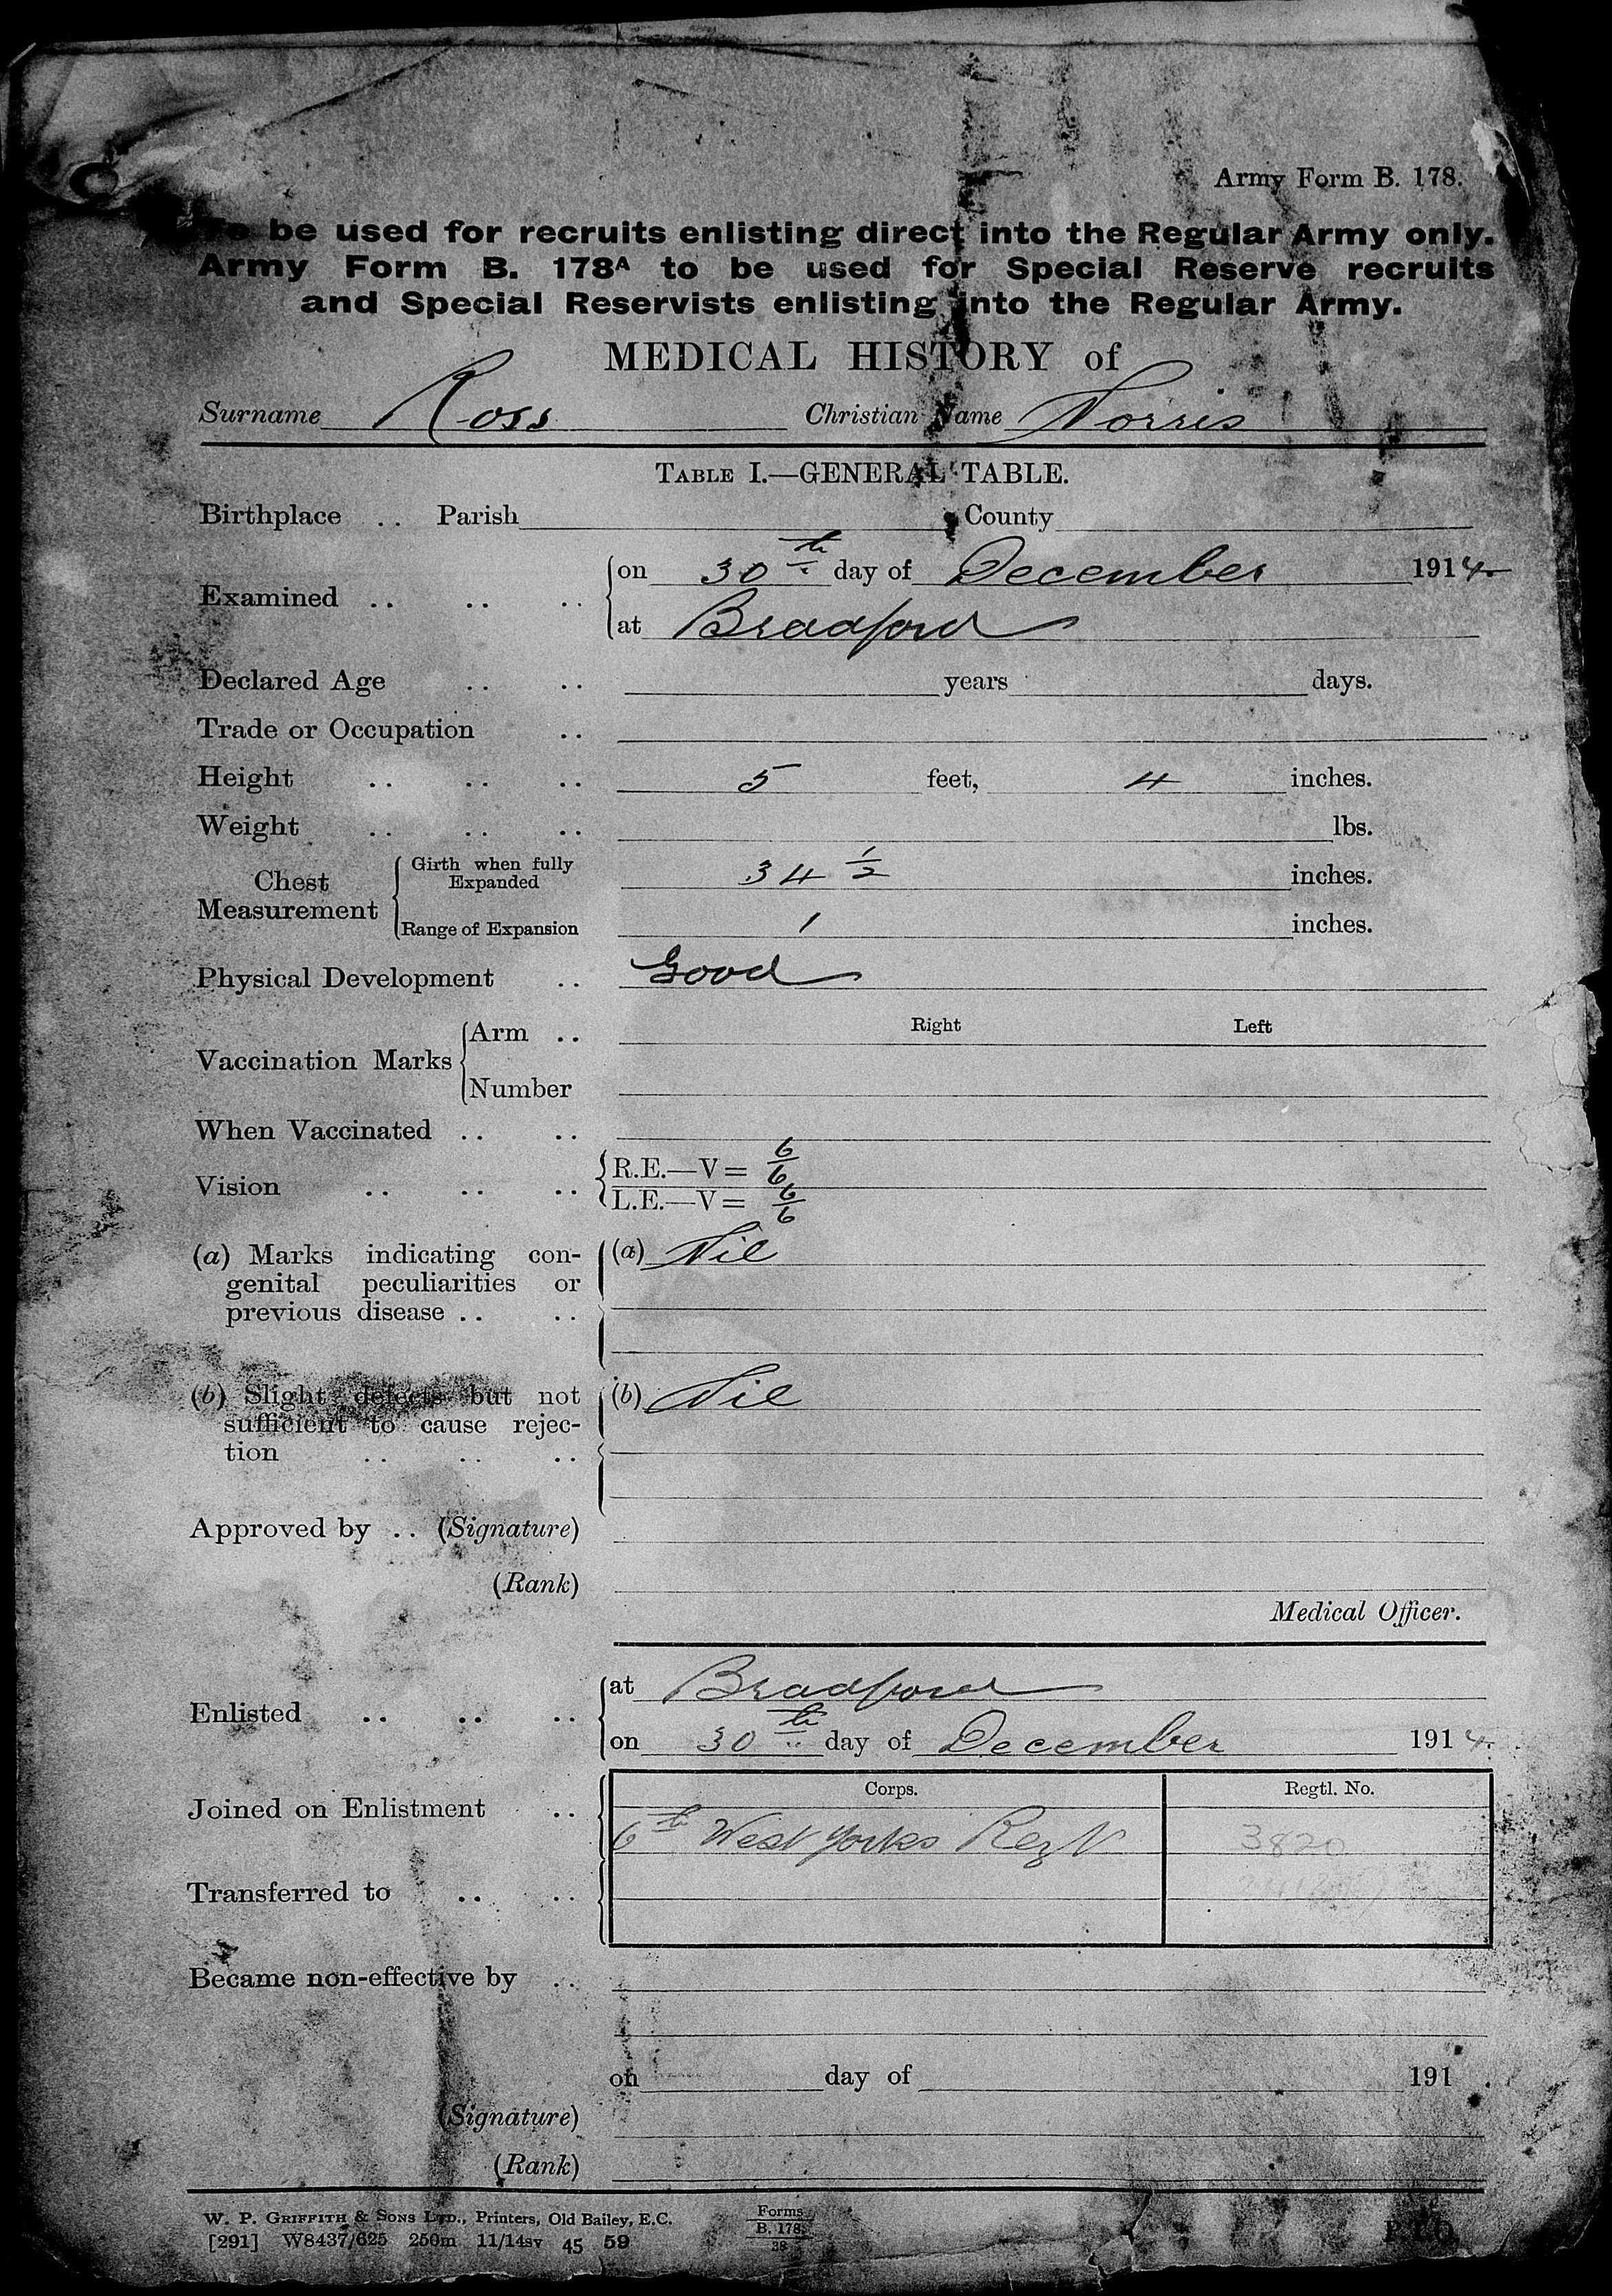 Army Form B. 178.
To be used for recruits enlisting direct into the Regular Army only.
Army Form B. 178A to be used for Special Reserve recruits
and Special Reservists enlisting into the Regular Army.
MEDICAL HISTORY of
Surname Ross Christian Name Norris
TABLE I.—GENERAL TABLE.
Birthplace .. Parish County
Examined .. .. .. on 30th day of December 1914.
at Bradford
Declared Age .. .. years days.
Trade or Occupation ..
Height .. .. .. 5 feet, 4 inches.
Weight .. .. .. lbs.
Chest Measurement Girth when fully Expanded 34 1/2 inches.
Range of Expansion 1 inches.
Physical Development .. Good
Right Left
Vaccination Marks Arm ..
Number
When Vaccinated .. ..
Vision .. .. .. R.E.—V= 6/6
L.E.—V= 6/6
(a) Marks indicating con- (a) Nil
genital peculiarities or
previous disease .. ..
(b) Slight defects but not (b) Nil
sufficient to cause rejec-
tion .. .. ..
Approved by .. (Signature)
(Rank)
Medical Officer.
Enlisted .. .. .. at Bradford
on 30th day of December 1914.
Corps. Regtl. No.
Joined on Enlistment .. 6th West Yorks Regt 3820
Transferred to .. ..
Became non-effective by ..
on day of 191 .
(Signature)
(Rank)
W. P. GRIFFITH & SONS LTD., Printers, Old Bailey, E.C.
[291] W8437/625 250m 11/14sv 45 59
Forms
B. 178
38
P.T.O.